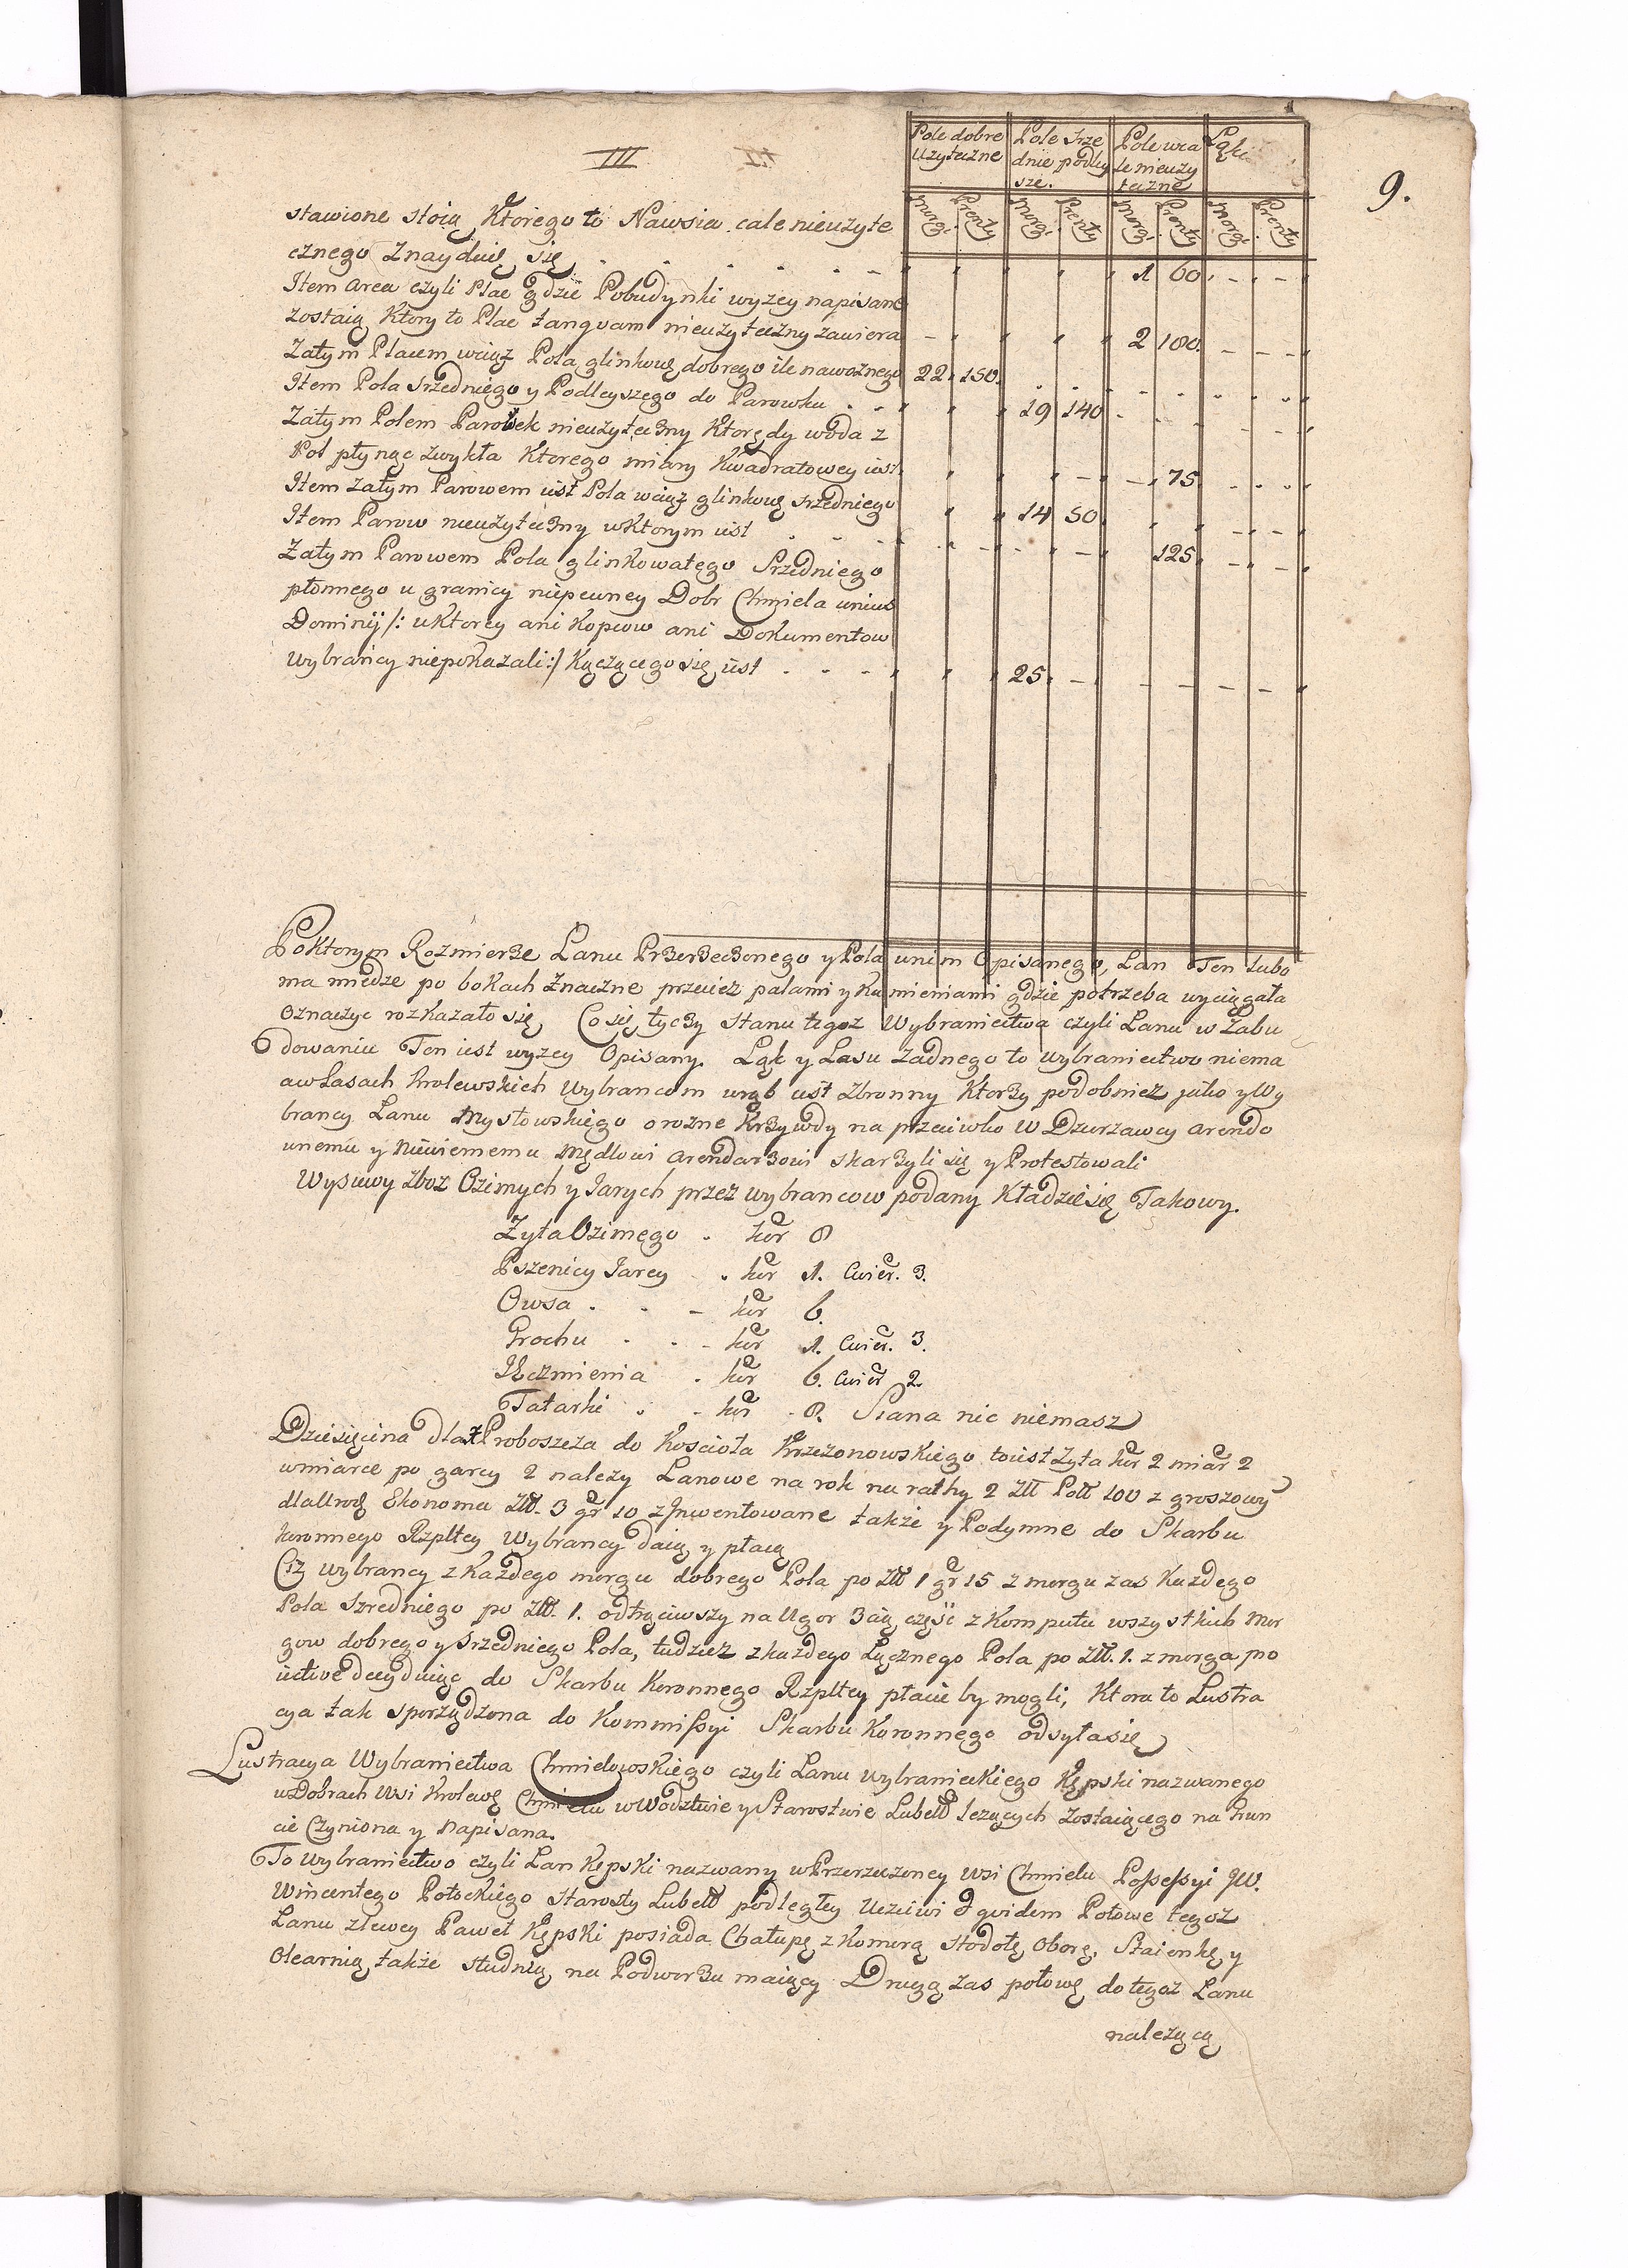 III
9.
Pole dobre Pole srze Pole wca Łąki
użyteczne dnie podley le nieuży
sze. teczne
Morgi Pręty Morgi Pręty Morgi Pręty Morgi Pręty
stawione stoią Ktorego to Nawsia cale nieużyte
cznego znayduie się . . . . . 1 60
Item area czyli Plac gdzie Pobudynki wyżey napisane
zostaią Ktory to Plac tanquam nieużyteczny zawiera 2 180
Zatym Placem wciąż Pola glinkowę dobrego ile nawoznego 22 150
Item Pola srzedniego y Podleyszego do Parowku . . 19 140
Zatym Polem Parowek nieużyteczny Ktorędy woda z
Pol płynąc zwykła Ktorego miary Kwadratowey iest 75
Item zatym Parowem iest Pola wciąż glinkowę srzedniego 14 50
Item Parow nieużyteczny w Ktorym iest . . . 125
Zatym Parowem Pola glinkowatego Srzedniego
płonnego u granicy niepewney Dobr Chmiela unius
Dominij /: u Ktorey ani Kopcow ani Dokumentow
Wybrańcy niepokazali :/ Kączącego się iest . . . 25 –
Po Ktorym Rozmierze Lanu Przerzeczonego y Pola unim Opisanego, Lan Ten lubo
ma miedze po bokach znaczne przecież palami y Kamieniami gdzie potrzeba wyciągała
oznaczyc rozkazało się Co się tyczy stanu tegoż Wybraniectwa czyli Lanu w Zabu
dowaniu Ten iest wyżey Opisany. Łąk y Lasu zadnego to wybraniectwo niema
a w Lasach Krolewskich Wybrancom wrąb iest zbronny Ktorzy podobnież jako y Wy
brancy Lanu Mysłowskiego o rozne Krzywdy na przeciwko W Dzurzawcy arendo
unemu y Niewiernemu Mędlowi arendarzowi skarzyli się y Protestowali
Wysiewy zboż Ozimych y Jarych przez wybrancow podany Kładzie się Takowy.
Zyta Ozimego . kor 8
Pszenicy Jarey . kor 1. Cwier. 3.
Owsa . . – kor 6.
Grochu . . – kor 1. Cwier. 3.
Jęczmienia . kor 6. Cwier 2.
Tatarki . . kor 8. Siana nic niemasz
Dziesięcina dla X Proboszcza do Koscioła Krzczonowskiego to iest Zyta kor 2 miar 2
w miarce po garcy 2 należy Lanowe na rok na rathy 2 Złł Poll 100 z groszowy
dla Urod Ekonoma Złł. 3 gr 10 z Inwentowane także y Podymne do Skarbu
Koronnego Rzpltey Wybrancy daią y płacą
Ciż wybrancy z Każdego morgu dobrego Pola po Złł 1 gr 15 z morgu zas Każdego
Pola Szredniego po Złł. 1. odtrąciwszy na Ugor 3cią część z Komputu wszystkich Mor
gow dobrego y srzedniego Pola, tudzież z każdego Łącznego Pola po Złł. 1. z morga po
iectwe decyduiąc do Skarbu Koronnego Rzpltey płacić by mogli, Ktora to Lustra
cya tak sporządzona do Kommissyi Skarbu Koronnego odsyła się
Lustracya Wybraniectwa Chmielowskiego czyli Lanu wybranieckiego Kępski nazwanego
w Dobrach Wsi Krolewę Chmielu w Wodztwie y Starostwie Lubell leżących zostaiącego na Grun
cie Czyniona y Napisana.
To Wybraniectwo czyli Lan Kępski nazwany w Przerzeczoney Wsi Chmielu Possessyi JW.
Wincentego Potockiego Starosty Lubell podległey Uczciwi et quidem Połowe tegoż
Lanu z lewey Paweł Kępski posiada Chałupę z Komorą stodołę Oborę, Staienkę y
Olearnią także studnią na Podworzu maiący Drugą zas połowę do tegoż Lanu
należącą